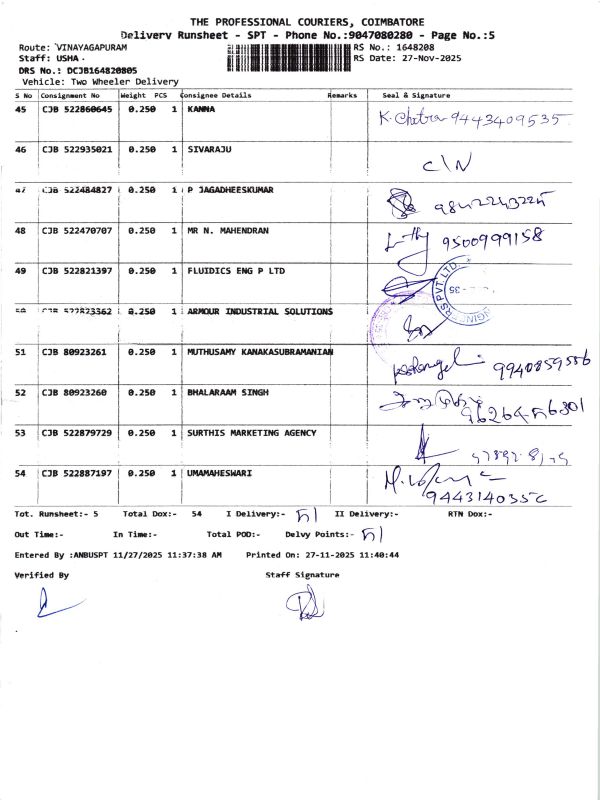 THE PROFESSIONAL COURIERS, COIMBATORE
Delivery Runsheet - SPT - Phone No.:9047080280 - Page No.:5
Route: VINAYAGAPURAM RS No.: 1648208
Staff: USHA . RS Date: 27-Nov-2025
DRS No.: DCJB164820805
Vehicle: Two Wheeler Delivery
S No Consignment No Weight PCS Consignee Details Remarks Seal & Signature
45 CJB 522860645 0.250 1 KANNA K. Chetra 9443409535
46 CJB 522935021 0.250 1 SIVARAJU C/N
47 CJB 522484827 0.250 1 P JAGADHEESKUMAR
48 CJB 522470707 0.250 1 MR N. MAHENDRAN 9500999158
49 CJB 522821397 0.250 1 FLUIDICS ENG P LTD
50 CJB 522823362 0.250 1 ARMOUR INDUSTRIAL SOLUTIONS
51 CJB 80923261 0.250 1 MUTHUSAMY KANAKASUBRAMANIAN 9940859556
52 CJB 80923260 0.250 1 BHALARAAM SINGH
53 CJB 522879729 0.250 1 SURTHIS MARKETING AGENCY
54 CJB 522887197 0.250 1 UMAMAHESWARI
Tot. Runsheet:- 5 Total Dox:- 54 I Delivery:- 51 II Delivery:- RTN Dox:-
Out Time:- In Time:- Total POD:- Delvy Points:- 51
Entered By :ANBUSPT 11/27/2025 11:37:38 AM Printed On: 27-11-2025 11:40:44
Verified By Staff Signature